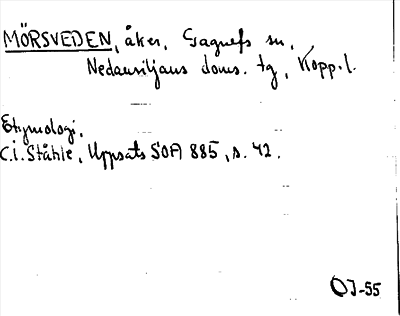 MÖRSVEDEN, åker, Gagnefs sn,
Nedansiljans doms. tg, Kopp.l.
Etymologi.
C.I. Ståhle, Uppsats SOA 885, s. 42.
OJ-55